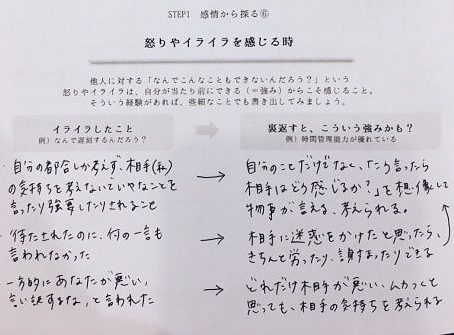 STEP1 感情から探る⑥
怒りやイライラを感じる時
他人に対する「なんでこんなこともできないんだろう?」という
怒りやイライラは、自分が当たり前にできる(=強み)からこそ感じること。
そういう経験があれば、些細なことでも書き出してみましょう。
イライラしたこと
例)なんで遅刻するんだろう?
・自分の都合しか考えず、相手(私)
の気持ちを考えないでいやなことを
言ったり強要したりされること
・待たされたのに、何の一言も
言われなかった
・一方的にあなたが悪い、
言い訳するな、と言われた
裏返すと、こういう強みかも?
例)時間管理能力が優れている
→ 自分のことだけでなく、「こう言ったら
相手はどう感じるか?」を想像して
物事が言える、考えられる。
→ 相手に迷惑をかけたと思ったら、
きちんと労ったり、謝まったりできる
→ どれだけ相手が悪い、ムカつくと
思っても、相手の気持ちを考えられる